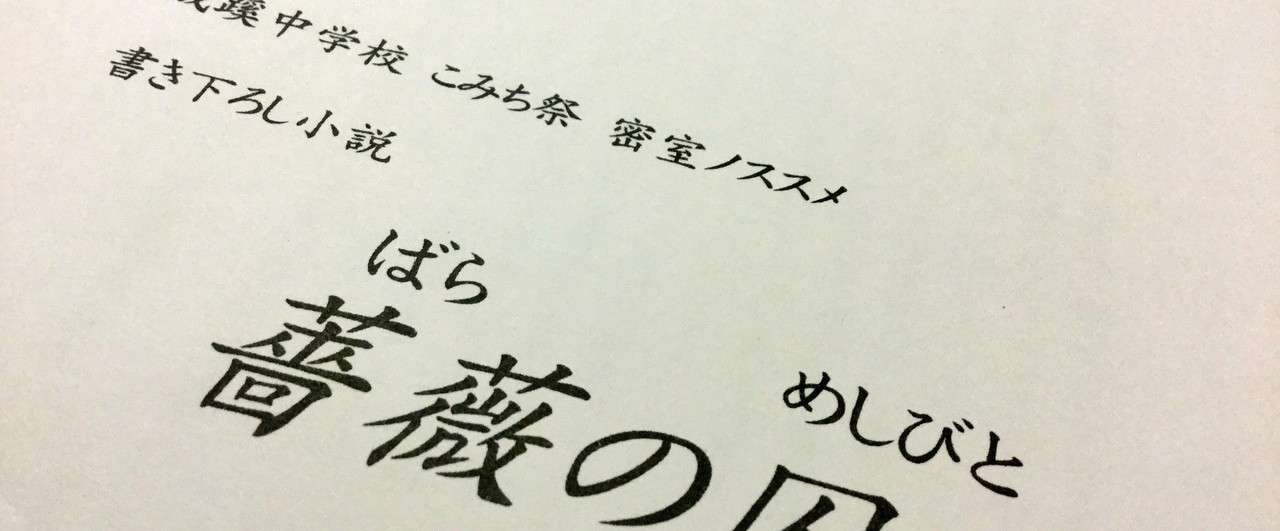 成蹊中学校 こみち祭 密室ノススメ
書き下ろし小説
ばら めしびと
薔薇の囚